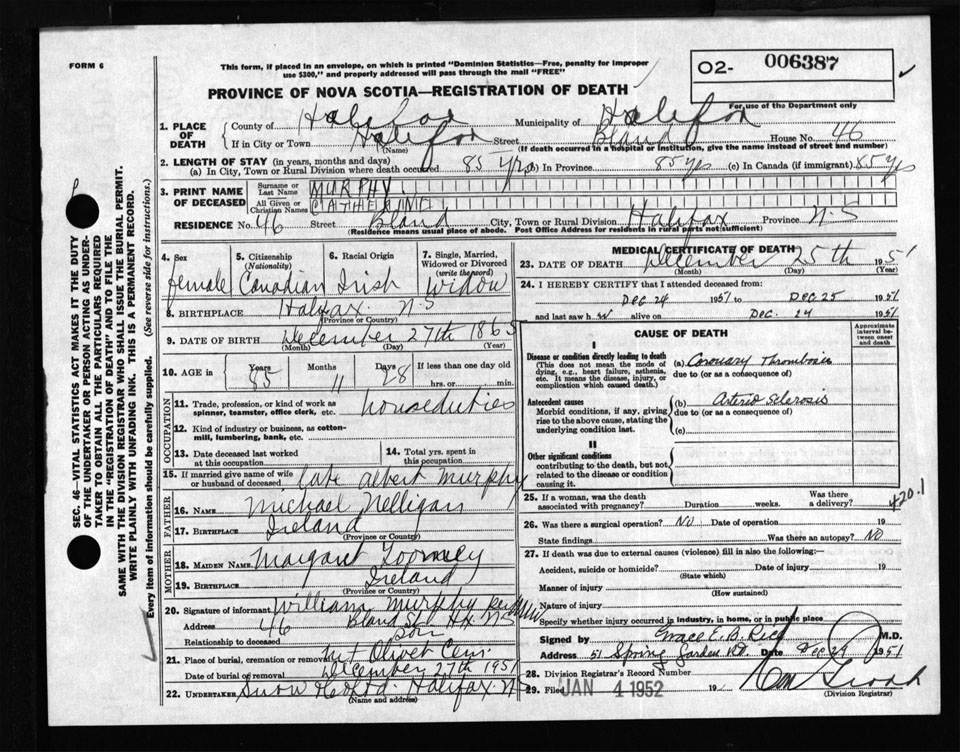 FORM 6
This form, if placed in an envelope, on which is printed "Dominion Statistics—Free, penalty for improper
use $300," and properly addressed will pass through the mail "FREE"
O2- 006387
PROVINCE OF NOVA SCOTIA—REGISTRATION OF DEATH
For use of the Department only
1. PLACE OF DEATH { County of Halifax Municipality of Halifax
If in City or Town Halifax Street Bland House No. 46
(Name) (If death occurred in a hospital or institution, give the name instead of street and number)
2. LENGTH OF STAY (in years, months and days)
(a) In City, Town or Rural Division where death occurred 85 yrs (b) In Province 85 ys (c) In Canada (if immigrant) 85 ys
3. PRINT NAME OF DECEASED { Surname or Last Name MURPHY
All Given or Christian Names CATHERINE
RESIDENCE No. 46 Street Bland City, Town or Rural Division Halifax Province N-S
(Residence means usual place of abode. Post Office Address for residents in rural parts not sufficient)
4. Sex 5. Citizenship (Nationality) 6. Racial Origin 7. Single, Married, Widowed or Divorced (write the word)
female Canadian Irish Widow
8. BIRTHPLACE Halifax N-S
(Province or Country)
9. DATE OF BIRTH December 27th 1865
(Month) (Day) (Year)
10. AGE in { Years 85 Months 11 Days 28 If less than one day
hrs. or min.
OCCUPATION
11. Trade, profession, or kind of work as spinner, teamster, office clerk, etc. houseduties
12. Kind of industry or business, as cotton-mill, lumbering, bank, etc.
13. Date deceased last worked at this occupation 14. Total yrs. spent in this occupation
15. If married give name of wife or husband of deceased Late Albert Murphy
FATHER
16. NAME Michael Nelligan
17. BIRTHPLACE Ireland
(Province or Country)
MOTHER
18. MAIDEN NAME Margaret Toomey
19. BIRTHPLACE Ireland
(Province or Country)
20. Signature of informant William Murphy
Address 46 Bland St Hx NS
Relationship to deceased son
21. Place of burial, cremation or removal Mt Olivet Cem.
Date of burial or removal December 27th 1951
22. UNDERTAKER Snow Halifax N-S
(Name and address)
MEDICAL CERTIFICATE OF DEATH
23. DATE OF DEATH December 25th 1951
(Month) (Day) (Year)
24. I HEREBY CERTIFY that I attended deceased from:
Dec 24 1951 to Dec 25 1951
and last saw h alive on Dec. 24 1951
CAUSE OF DEATH
Approximate interval between onset and death
I
Disease or condition directly leading to death (a) Coronary Thrombosis
(This does not mean the mode of dying, e.g., heart failure, asthenia, etc. It means the disease, injury, or complication which caused death.)
due to (or as a consequence of)
Antecedent causes (b) Arterio sclerosis
Morbid conditions, if any, giving rise to the above cause, stating the underlying condition last.
due to (or as a consequence of)
(c)
II
Other significant conditions
contributing to the death, but not related to the disease or condition causing it.
25. If a woman, was the death associated with pregnancy? Duration weeks. Was there a delivery? 420.1
26. Was there a surgical operation? No Date of operation 19
State findings Was there an autopsy? No
27. If death was due to external causes (violence) fill in also the following:—
Accident, suicide or homicide? Date of injury 19
(State which)
Manner of injury
(How sustained)
Nature of injury
Specify whether injury occurred in industry, in home, or in public place
Signed by Grace E. B. Rice M.D.
Address 51 Spring Garden Rd. Date Dec 29 1951
28. Division Registrar's Record Number
29. Filed JAN 4 1952 19
(Division Registrar)
SEC. 46—VITAL STATISTICS ACT MAKES IT THE DUTY
OF THE UNDERTAKER OR PERSON ACTING AS UNDER-
TAKER TO OBTAIN ALL THE PARTICULARS REQUIRED
IN THE "REGISTRATION OF DEATH" AND TO FILE THE
SAME WITH THE DIVISION REGISTRAR WHO SHALL ISSUE THE BURIAL PERMIT.
WRITE PLAINLY WITH UNFADING INK. THIS IS A PERMANENT RECORD.
Every item of information should be carefully supplied. (See reverse side for instructions.)